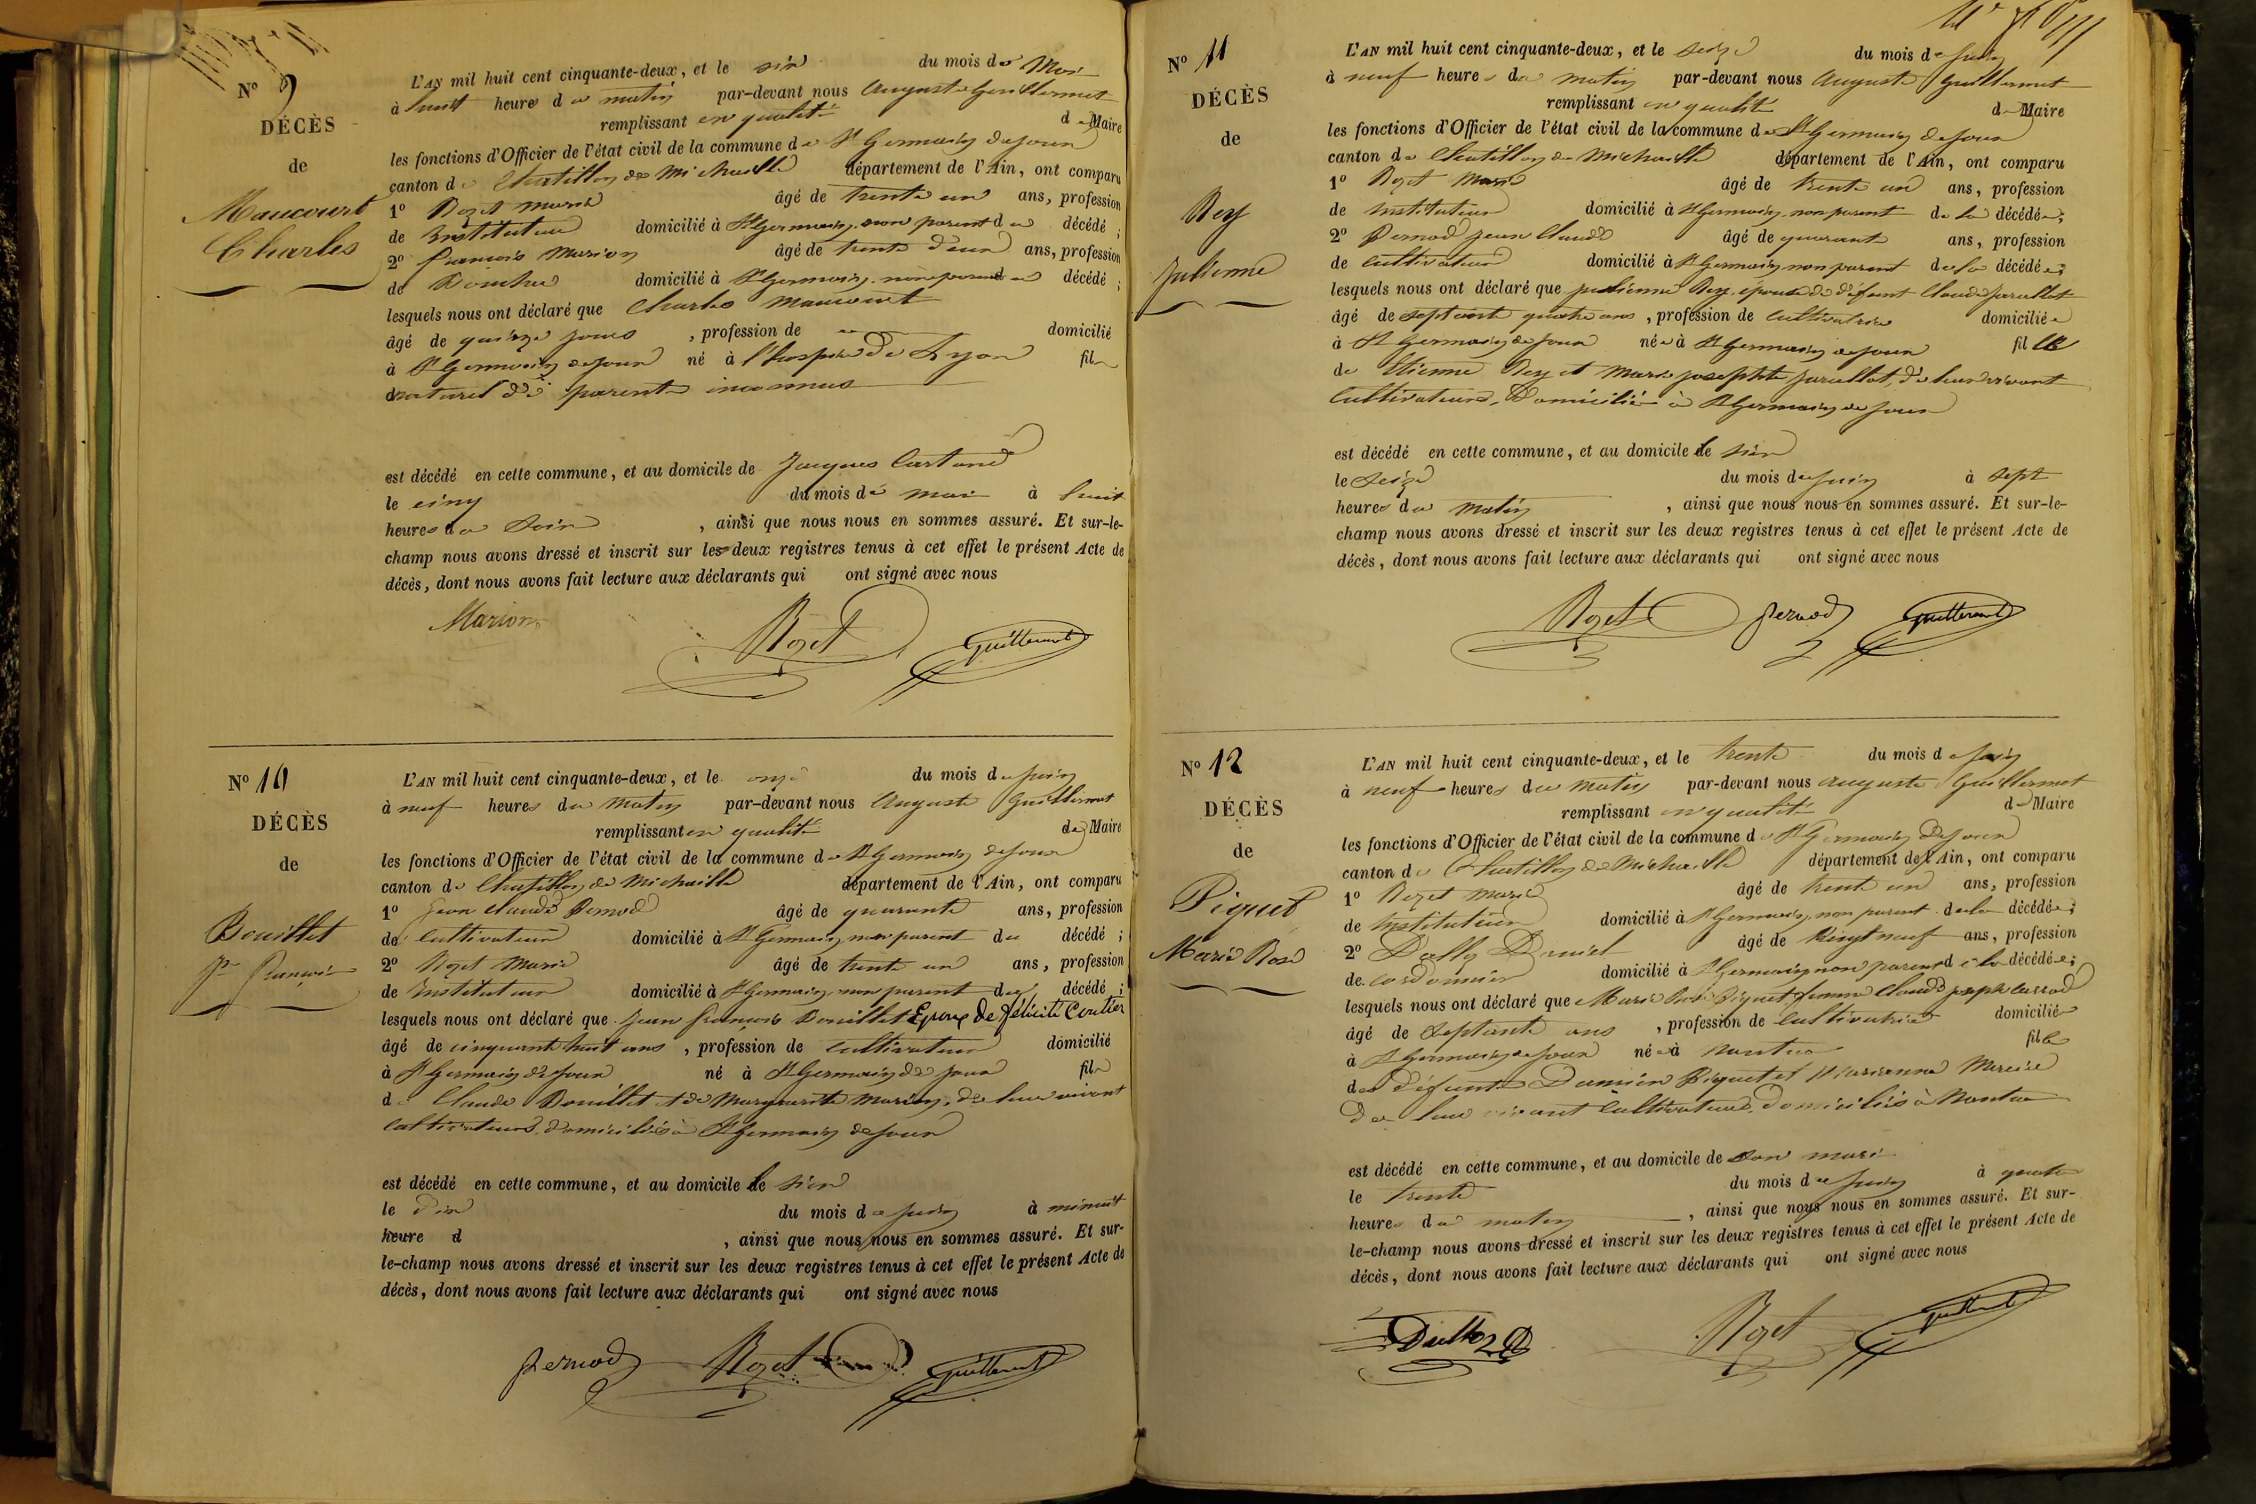 N° 9
DÉCÈS
de
Maucourt
Charles
L'AN mil huit cent cinquante-deux, et le six du mois de Mai
à huit heures du matin par-devant nous Auguste Guillermet
remplissant en qualité de Maire
les fonctions d'Officier de l'état civil de la commune de St Germain de Joux
canton de Chatillon de Michaille département de l'Ain, ont comparu
1° Rozet Marie âgé de trente un ans, profession
de Instituteur domicilié à St Germain, non parent du décédé ;
2° François Marion âgé de trente deux ans, profession
de domicilié à St Germain, non parent du décédé ;
lesquels nous ont déclaré que Charles Maucourt
âgé de quinze jours , profession de domicilié
à St Germain de Joux né à l'hospice de Lyon fils
naturel de parents inconnus
est décédé en cette commune, et au domicile de Jacques
le cinq du mois de mai à huit
heures du Soir , ainsi que nous nous en sommes assuré. Et sur-le-
champ nous avons dressé et inscrit sur les deux registres tenus à cet effet le présent Acte de
décès, dont nous avons fait lecture aux déclarants qui ont signé avec nous
Marion Rozet Guillermet
N° 10
DÉCÈS
de
Bouillet
Jn François
L'AN mil huit cent cinquante-deux, et le onze du mois de Juin
à neuf heures du Matin par-devant nous Auguste Guillermet
remplissant en qualité de Maire
les fonctions d'Officier de l'état civil de la commune de St Germain de Joux
canton de Chatillon de Michaille département de l'Ain, ont comparu
1° Jean Claude Pernod âgé de quarante ans, profession
de Cultivateur domicilié à St Germain, non parent du décédé ;
2° Rozet Marie âgé de trente un ans, profession
de Instituteur domicilié à St Germain, non parent du décédé ;
lesquels nous ont déclaré que Jean françois Bouillet Epoux de félicité Coutier
âgé de cinquante huit ans , profession de cultivateur domicilié
à St Germain de Joux né à St Germain de Joux fils
de Claude Bouillet et de Marguerite Marion, de leur vivant
Cultivateurs, domiciliés à St Germain de Joux
est décédé en cette commune, et au domicile le sien
le dix du mois de Juin à minuit
heure d , ainsi que nous nous en sommes assuré. Et sur-
le-champ nous avons dressé et inscrit sur les deux registres tenus à cet effet le présent Acte de
décès, dont nous avons fait lecture aux déclarants qui ont signé avec nous
Pernod Rozet Guillermet
N° 11
DÉCÈS
de
Rey
Julienne
L'AN mil huit cent cinquante-deux, et le seize du mois de Juin
à neuf heures du matin par-devant nous Auguste Guillermet
remplissant en qualité de Maire
les fonctions d'Officier de l'état civil de la commune de St Germain de Joux
canton de Chatillon de Michaille département de l'Ain, ont comparu
1° Rozet Marie âgé de trente un ans, profession
de Instituteur domicilié à St Germain, non parent de la décédée ;
2° Pernod Jean Claude âgé de quarante ans, profession
de Cultivateur domicilié à St Germain non parent de la décédée ;
lesquels nous ont déclaré que julienne Rey, épouse de défunt Claude
âgé de septante quatre ans , profession de cultivatrice domiciliée
à St Germain de Joux née à St Germain de Joux fille
de Etienne Rey et Marie josephte de leur vivant
Cultivateurs, Domiciliés à St Germain de Joux
est décédé en cette commune, et au domicile le sien
le seize du mois de Juin à sept
heures du Matin , ainsi que nous nous en sommes assuré. Et sur-le-
champ nous avons dressé et inscrit sur les deux registres tenus à cet effet le présent Acte de
décès, dont nous avons fait lecture aux déclarants qui ont signé avec nous
Rozet Pernod Guillermet
N° 12
DÉCÈS
de
Piquet
Marie Rose
L'AN mil huit cent cinquante-deux, et le trente du mois de Juin
à neuf heures du matin par-devant nous Auguste Guillermet
remplissant en qualité de Maire
les fonctions d'Officier de l'état civil de la commune de St Germain de Joux
canton de Chatillon de Michaille département de l'Ain, ont comparu
1° Rozet Marie âgé de trente un ans, profession
de Instituteur domicilié à St Germain, non parent de la décédée ;
2° Daniel âgé de vingt neuf ans, profession
de cordonnier domicilié à St Germain non parent de la décédée ;
lesquels nous ont déclaré que Marie Rose Piquet femme Claude joseph
âgé de septante ans , profession de cultivatrice domiciliée
à St Germain de Joux née à Nantua fille
des défunts Damien Piquet et Marianne Mercier
de leur vivant Cultivateurs, domiciliés à Nantua
est décédé en cette commune, et au domicile de son mari
le trente du mois de Juin à quatre
heures du matin , ainsi que nous nous en sommes assuré. Et sur-
le-champ nous avons dressé et inscrit sur les deux registres tenus à cet effet le présent Acte de
décès, dont nous avons fait lecture aux déclarants qui ont signé avec nous
Rozet Guillermet